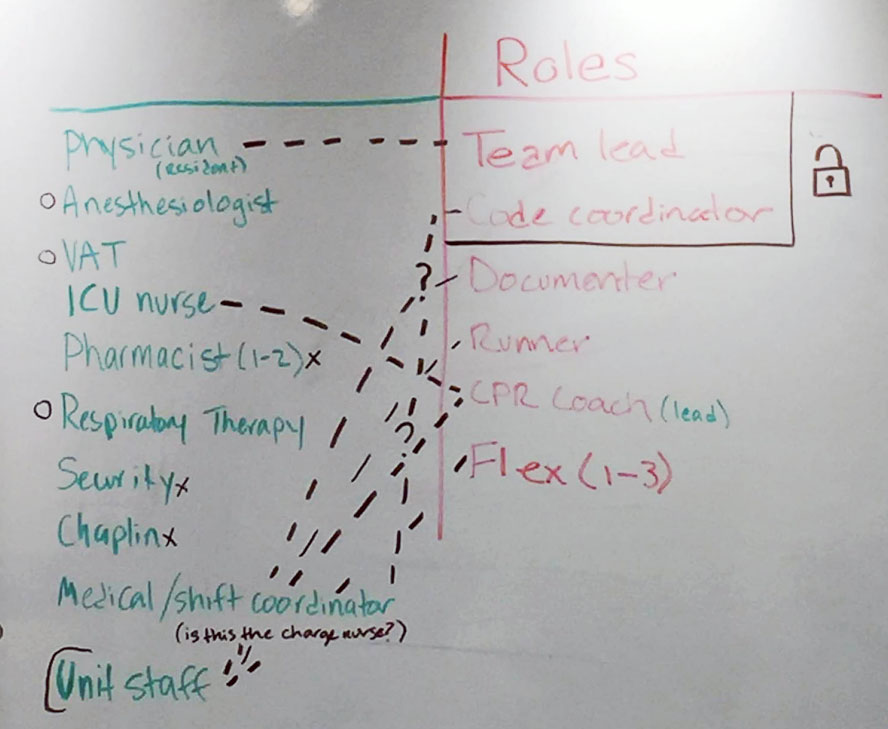 Roles
Physician
(resident)
Anesthesiologist
VAT
ICU nurse
Pharmacist (1-2) x
Respiratory Therapy
Security x
Chaplin x
Medical/shift coordinator
(is this the charge nurse?)
Unit staff
Team lead
Code coordinator
?
Documenter
Runner
CPR Coach (lead)
?
Flex (1-3)